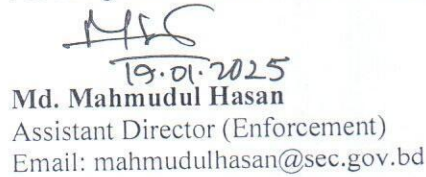 19.01.2025
Md. Mahmudul Hasan
Assistant Director (Enforcement)
Email: mahmudulhasan@sec.gov.bd